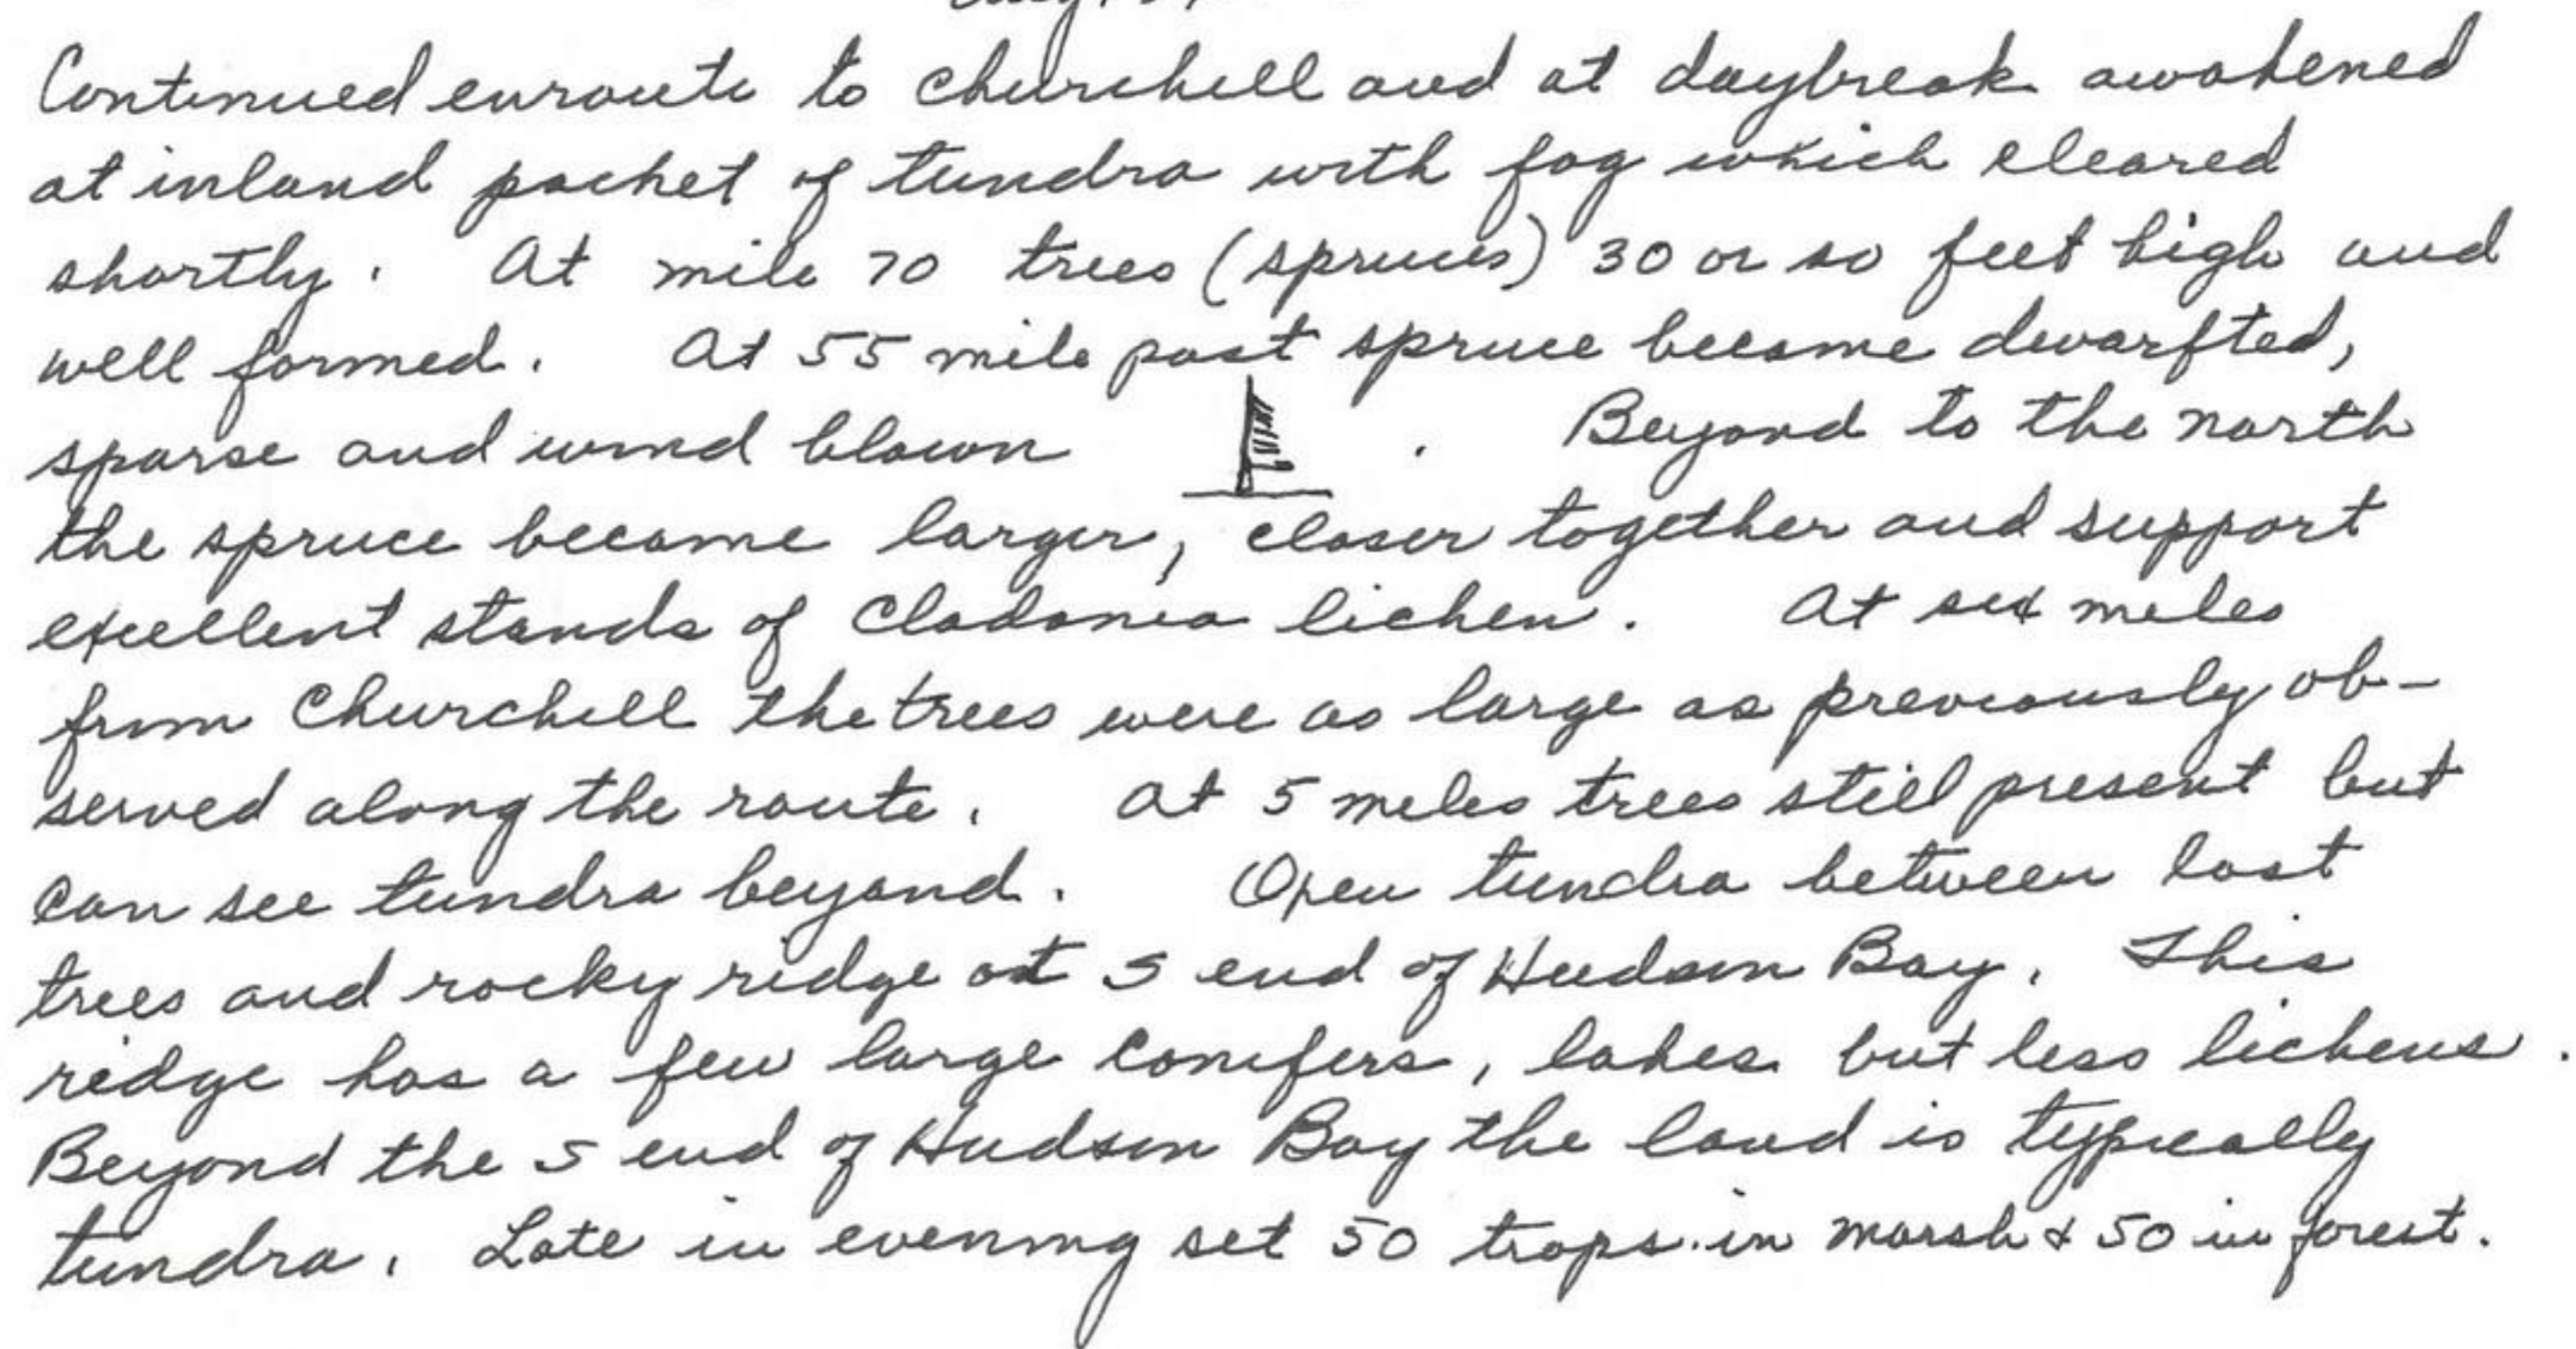 Continued enroute to Churchill and at daybreak awakened
at inland pocket of tundra with fog which cleared
shortly. At mile 70 trees (spruces) 30 or so feet high and
well formed. At 55 mile post spruce became dwarfted,
sparse and wind blown . Beyond to the north
the spruce became larger, closer together and support
excellent stands of Cladonia lichen. At six miles
from Churchill the trees were as large as previously ob-
served along the route. At 5 miles trees still present but
can see tundra beyond. Open tundra between last
trees and rocky ridge at S end of Hudson Bay. This
ridge has a few large conifers, lakes but less lichens.
Beyond the S end of Hudson Bay the land is typically
tundra. Late in evening set 50 traps in marsh & 50 in forest.